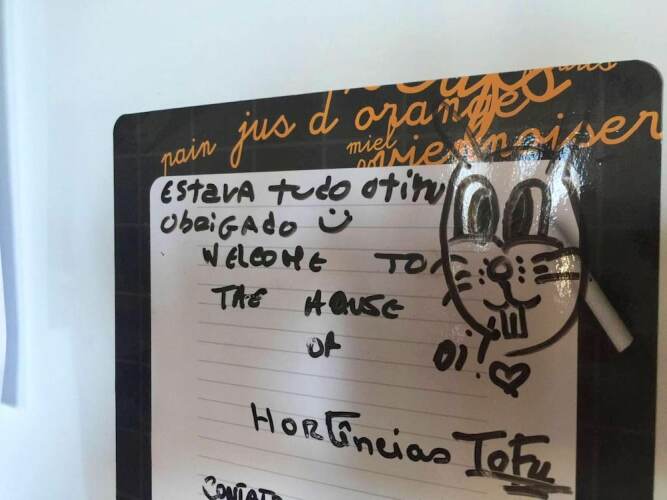 pain jus d'orange
miel
viennoiser
Estava tudo otimo
Obrigado
WELCOME TO
THE HOUSE
OF OI!
Hortências Tofu
CONTATO